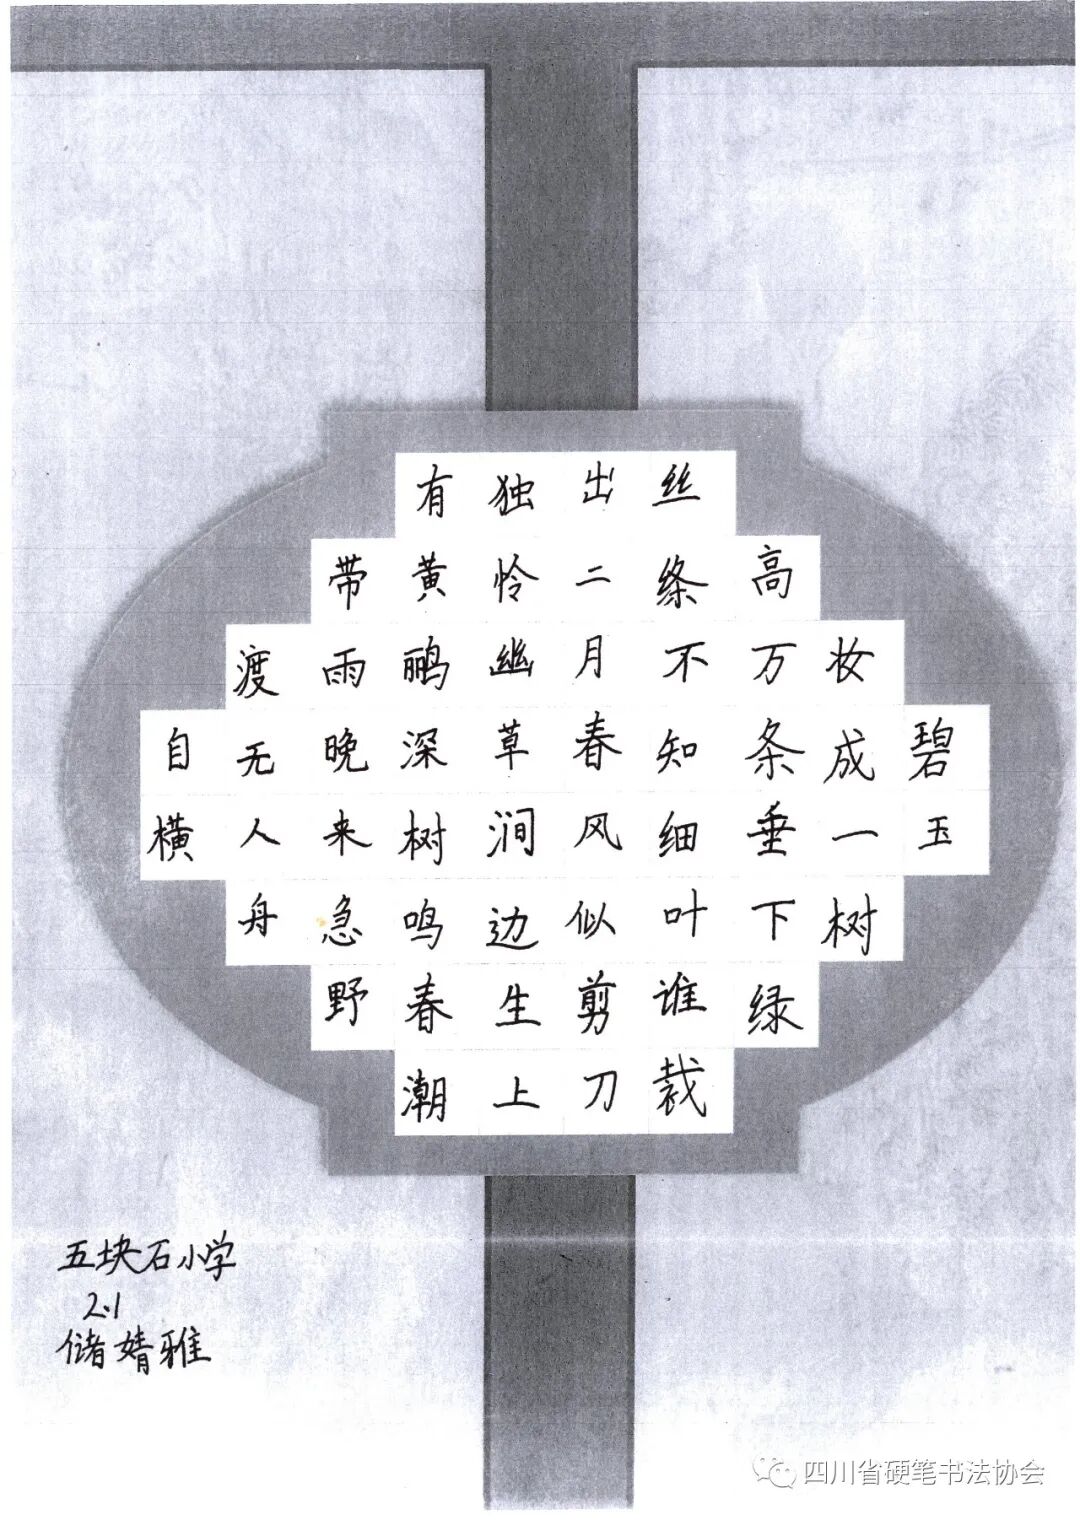 碧玉
妆成一树
高万条垂下绿
丝绦不知细叶谁裁
出二月春风似剪刀
独怜幽草涧边生上
有黄鹂深树鸣春潮
带雨晚来急野
渡无人舟
自横
五块石小学
2.1
储婧雅
四川省硬笔书法协会